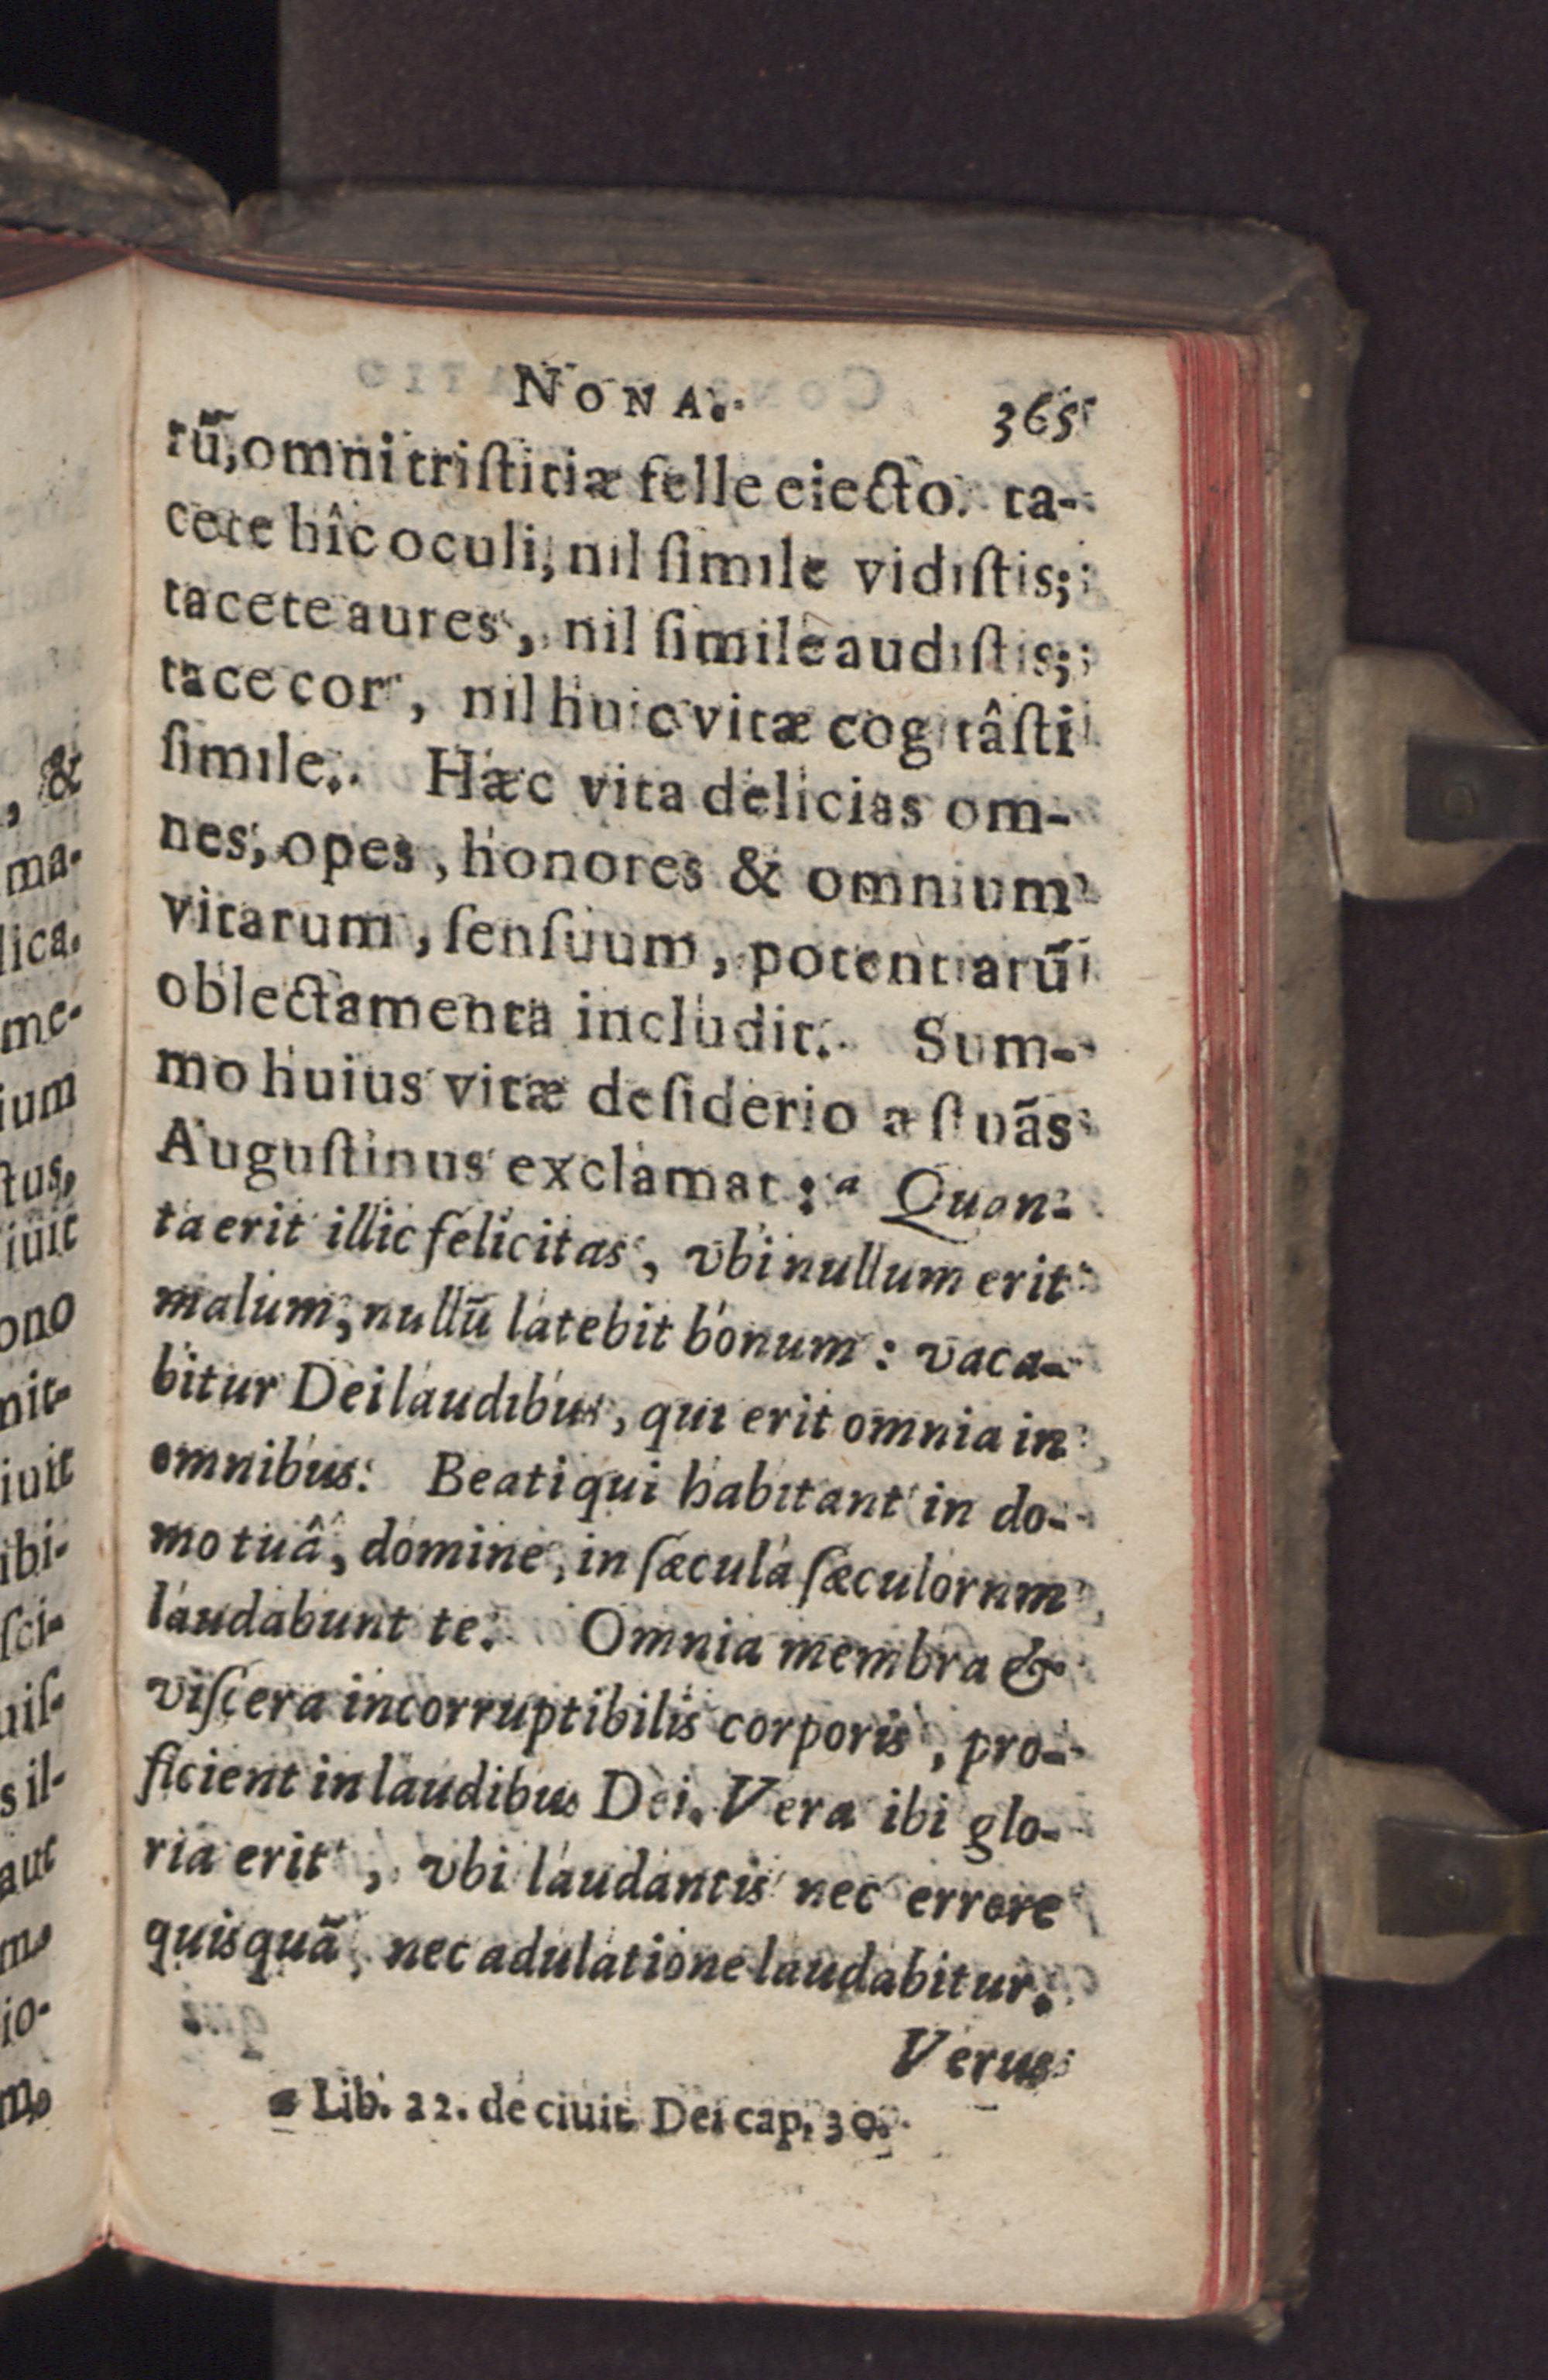 NONA. 365
rũ, omni triſtitiæ felle eiecto. ta-
cete hîc oculi, nil ſimile vidiſtis;
tacete aures, nil ſimile audiſtis;
tace cor, nil huic vitæ cogitâſti
ſimile. Hæc vita delicias om-
nes, opes, honores & omnium
vitarum, ſenſuum, potentiarũ
oblectamenta includit. Sum-
mo huius vitæ deſiderio æſtuãs
Auguſtinus exclamat: a Quan-
ta erit illic felicitas, vbi nullum erit
malum, nullũ latebit bonum: vaca-
bitur Dei laudibus, qui erit omnia in
omnibus. Beati qui habitant in do-
mo tuâ, domine, in ſæcula ſæculorum
laudabunt te. Omnia membra &
viſcera incorruptibilis corporis, pro-
ficient in laudibus Dei. Vera ibi glo-
ria erit, vbi laudantis nec errore
quisquã, nec adulatione laudabitur.
Verus
a Lib. 22. de ciuit. Dei cap. 30.
, &
ma-
lica.
me-
ium
ſtus,
iuit
ono
nit-
iuit
ibi-
ſci-
uiſ-
s il-
aut
m,
io-
m,